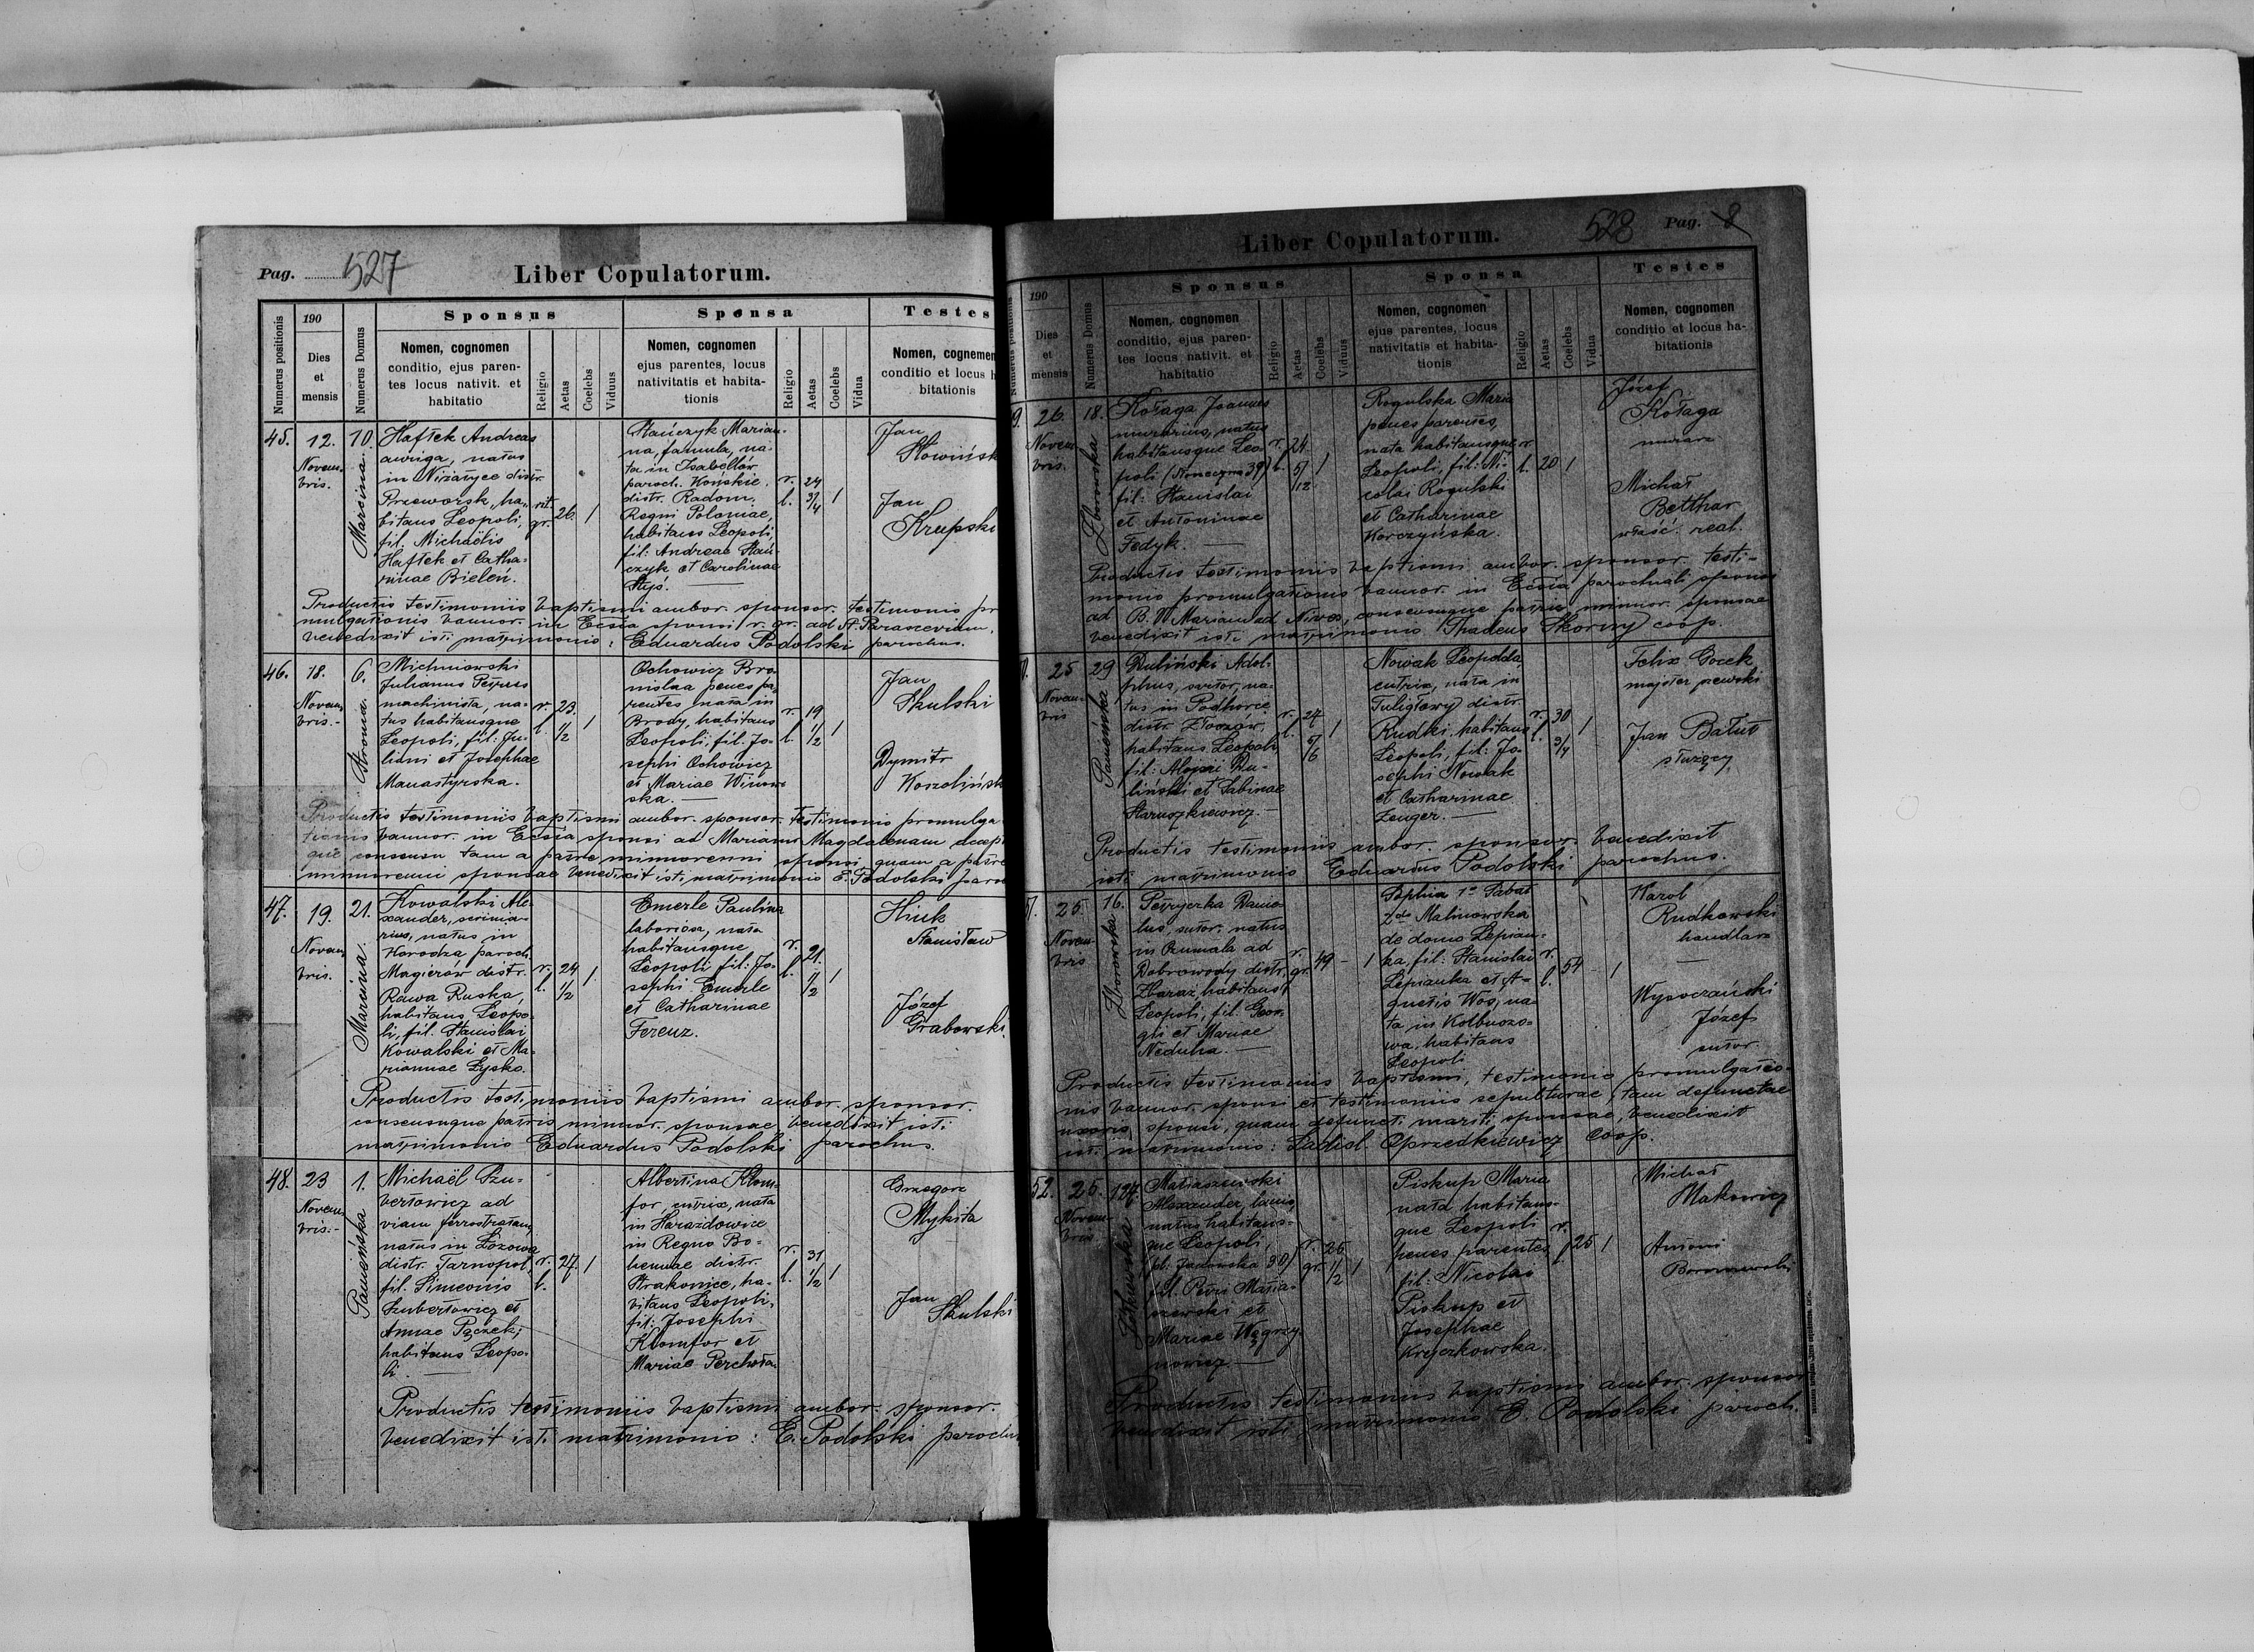 Pag. 527
Liber Copulatorum.
Numerus positionis
190
Dies
et
mensis
Numerus Domus
Sponsus
Nomen, cognomen
conditio, ejus paren-
tes locus nativit. et
habitatio
Religio
Aetas
Coelebs
Viduus
Sponsa
Nomen, cognomen
ejus parentes, locus
nativitatis et habita-
tionis
Religio
Aetas
Coelebs
Vidua
Testes
Nomen, cognomen
conditio et locus h
bitationis
45.
12.
Novem-
bris.
10.
Marcina
Haftek Andreas
auriga, natus
in Niżatyce distr.
Przeworsk, ha-
bitans Leopoli,
fil. Michaëlis
Haftek et Catha-
rinae Bieleń.
rit.
gr.
26.
1
Stańczyk Marian-
na, famula, na-
ta in Izabellów
paroch. Końskie,
distr. Radom,
Regni Poloniae,
habitans Leopoli,
fil: Andreae Stań-
czyk et Carolinae
r.
l.
24
3/4
1
Jan
Słowińsk
Jan
Krupski
Productis testimoniis baptismi ambor. sponsor. testimonio pr
mulgationis bannor. in Ecclsia sponsi r. gr. ad St. Parasceviam,
benedixit isti matrimonio: Eduardus Podolski parochus.
46.
18.
Novem-
bris.-
6.
Stroma.
Michniowski
Julianus Petrus
machinista, na-
tus habitansque
Leopoli, fil: Ju-
liani et Josephae
Manastyrska.
r.
l.
23.
1/2
1
Ochowicz Bro-
nislaa penes pa-
rentes nata in
Brody, habitans
Leopoli, fil. Jo-
sephi Ochowicz
et Mariae Winow-
ska.
r.
l.
19
1/2
1
Jan
Skulski
Dymitr
Koszolińsk
Productis testimoniis baptismi ambor. sponsor. testimonio promulga
tionis bannor. in Ecclsia sponsi ad Mariam Magdalenam accept
que consensu tam a patre minorenni sponsi quam a patre
minorenni sponsae benedixit isti matrimonio E. Podolski paro
47.
19.
Novem
bris.
21.
Marcina.
Kowalski Ale-
xander, scrinia-
rius, natus in
Horodza paroch.
Magierów distr.
Rawa Ruska,
habitans Leopo-
li, fil. Stanislai
Kowalski et Ma-
riannae Łysko.
r.
l.
24
1/2
1.
Emerle Paulina
laboriosa, nata
habitansque
Leopoli fil: Jo-
sephi Emerle
et Catharinae
Ferenz.
r.
l.
21.
1/2
1
Hiuk
Stanisław
Józef
Grabowski.
Productis testimoniis baptismi ambor. sponsor.
consensuque patris minor. sponsae benedixit isti
matrimonio Eduardus Podolski parochus.
48.
23
Novem
bris.-
1.
Panieńska
Michaël Szu-
bertowicz ad
viam ferrostratam,
natus in Łozowa
distr. Tarnopol,
fil. Simeonis
Szubertowicz et
Annae Pączek,
habitans Leopo-
li.
r.
l.
27.
1
Albertina Klom-
for, cutrix, nata
in Horaždowice
in Regno Bo-
hemiae distr.
Strakonice, ha-
bitans Leopoli,
fil: Josephi
Klomfor et
Mariae Perchota
r.
l.
31
1/2
1
Grzegorz
Mykita
Jan
Skulski
Productis testimoniis baptismi ambor. sponsor.
benedixit isti matrimonio: E. Podolski parochu
528 Pag. 8
Liber Copulatorum.
Numerus positionis
190
Dies
et
mensis
Numerus Domus
Sponsus
Nomen, cognomen
conditio, ejus paren-
tes locus nativit. et
habitatio
Religio
Aetas
Coelebs
Viduus
Sponsa
Nomen, cognomen
ejus parentes, locus
nativitatis et habita-
tionis
Religio
Aetas
Coelebs
Vidua
Testes
Nomen, cognomen
conditio et locus ha-
bitationis
9.
26
Novem-
bris.
18.
Kołaga Joannes
murarius, natus
habitansque Leo-
poli (Słoneczna 39)
fil: Stanislai
et Antoninae
Fedyk.
r.
l.
24
5/12
1
Rogulska Maria
penes parentes,
nata habitansque
Leopoli, fil: Ni-
colai Rogulski
et Catharinae
Korczyńska.
r.
l.
20
1
Józef
Kołaga
murarz
Michał
Betthar
właść. real.
Productis testimoniis baptismi ambor. sponsor. testi-
monio promulgationis bannor. in Ecclsia parochiali sponsi
ad B. V. Mariam ad Nives, consensuque patris minor. sponsae
benedixit isti matrimonio Thadeus Skorny coop.
25
Novem-
bris
29
Panieńska
Ruliński Adol-
phus, sutor, na-
tus in Podhorce
distr. Złoczów,
habitans Leopoli
fil: Alexii Ru-
liński et Sabinae
Staruszkiewicz.
r.
l.
27
5/6
1
Nowak Leopolda
cutrix, nata in
Tuligłowy distr.
Rudki, habitans
Leopoli, fil: Jo-
sephi Nowak
et Catharinae
Zenger.
r.
l.
30
3/4
1
Felix Gocek
majster szewski
Jan Batut
służący
Productis testimoniis ambor. sponsor. benedixit
isti matrimonio Eduardus Podolski parochus.
51.
25
Novem-
bris
16.
Zborowska
Petryczka Danie-
lus, sutor, natus
in Rumala ad
Dobrowody distr.
Zbaraż, habitans
Leopoli, fil. Geor-
gii et Mariae
Neduha.
r.
gr.
49
-
1
Sophia 1º Sabat
2do Malinowska
de domo Lepian-
ka, fil: Stanislai
Lepianka et A-
gnetis Wos, na-
ta in Kolbuszo-
wa, habitans
Leopoli
r.
l.
54
-
1
Karol
Rudkowski
handlarz
Wysoczański
Józef
sutor.
Productis testimoniis baptismi, testimonio promulgatio-
nis bannor. sponsi et testimoniis sepulturae tam defunctae
uxoris sponsi, quam defuncti mariti sponsae, benedixit
isti matrimonio: Ladisl. Oprzedkiewicz coop.
52.
26.
Novem-
bris
124.
Matiaszewski
Alexander, lanio,
natus habitans-
que Leopoli,
(pl. Janowska 38)
fil. Petri Matia-
szewski et
Mariae Węgrzy-
nowicz.
r.
gr.
26
1/2
1
Piskup Maria
nata habitans-
que Leopoli
penes parentes,
fil: Nicolai
Piskup et
Josephae
Kryczkowska.
r.
l.
25
1
Michał
Makowicz
Antoni
Productis testimoniis baptismi ambor. sponsor
benedixit isti matrimonio E. Podolski paroch.